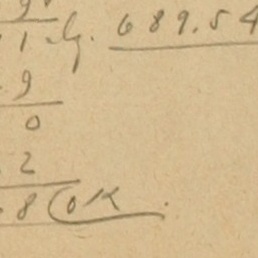 9
1. G. 689.54
9
0
2
8 OK.